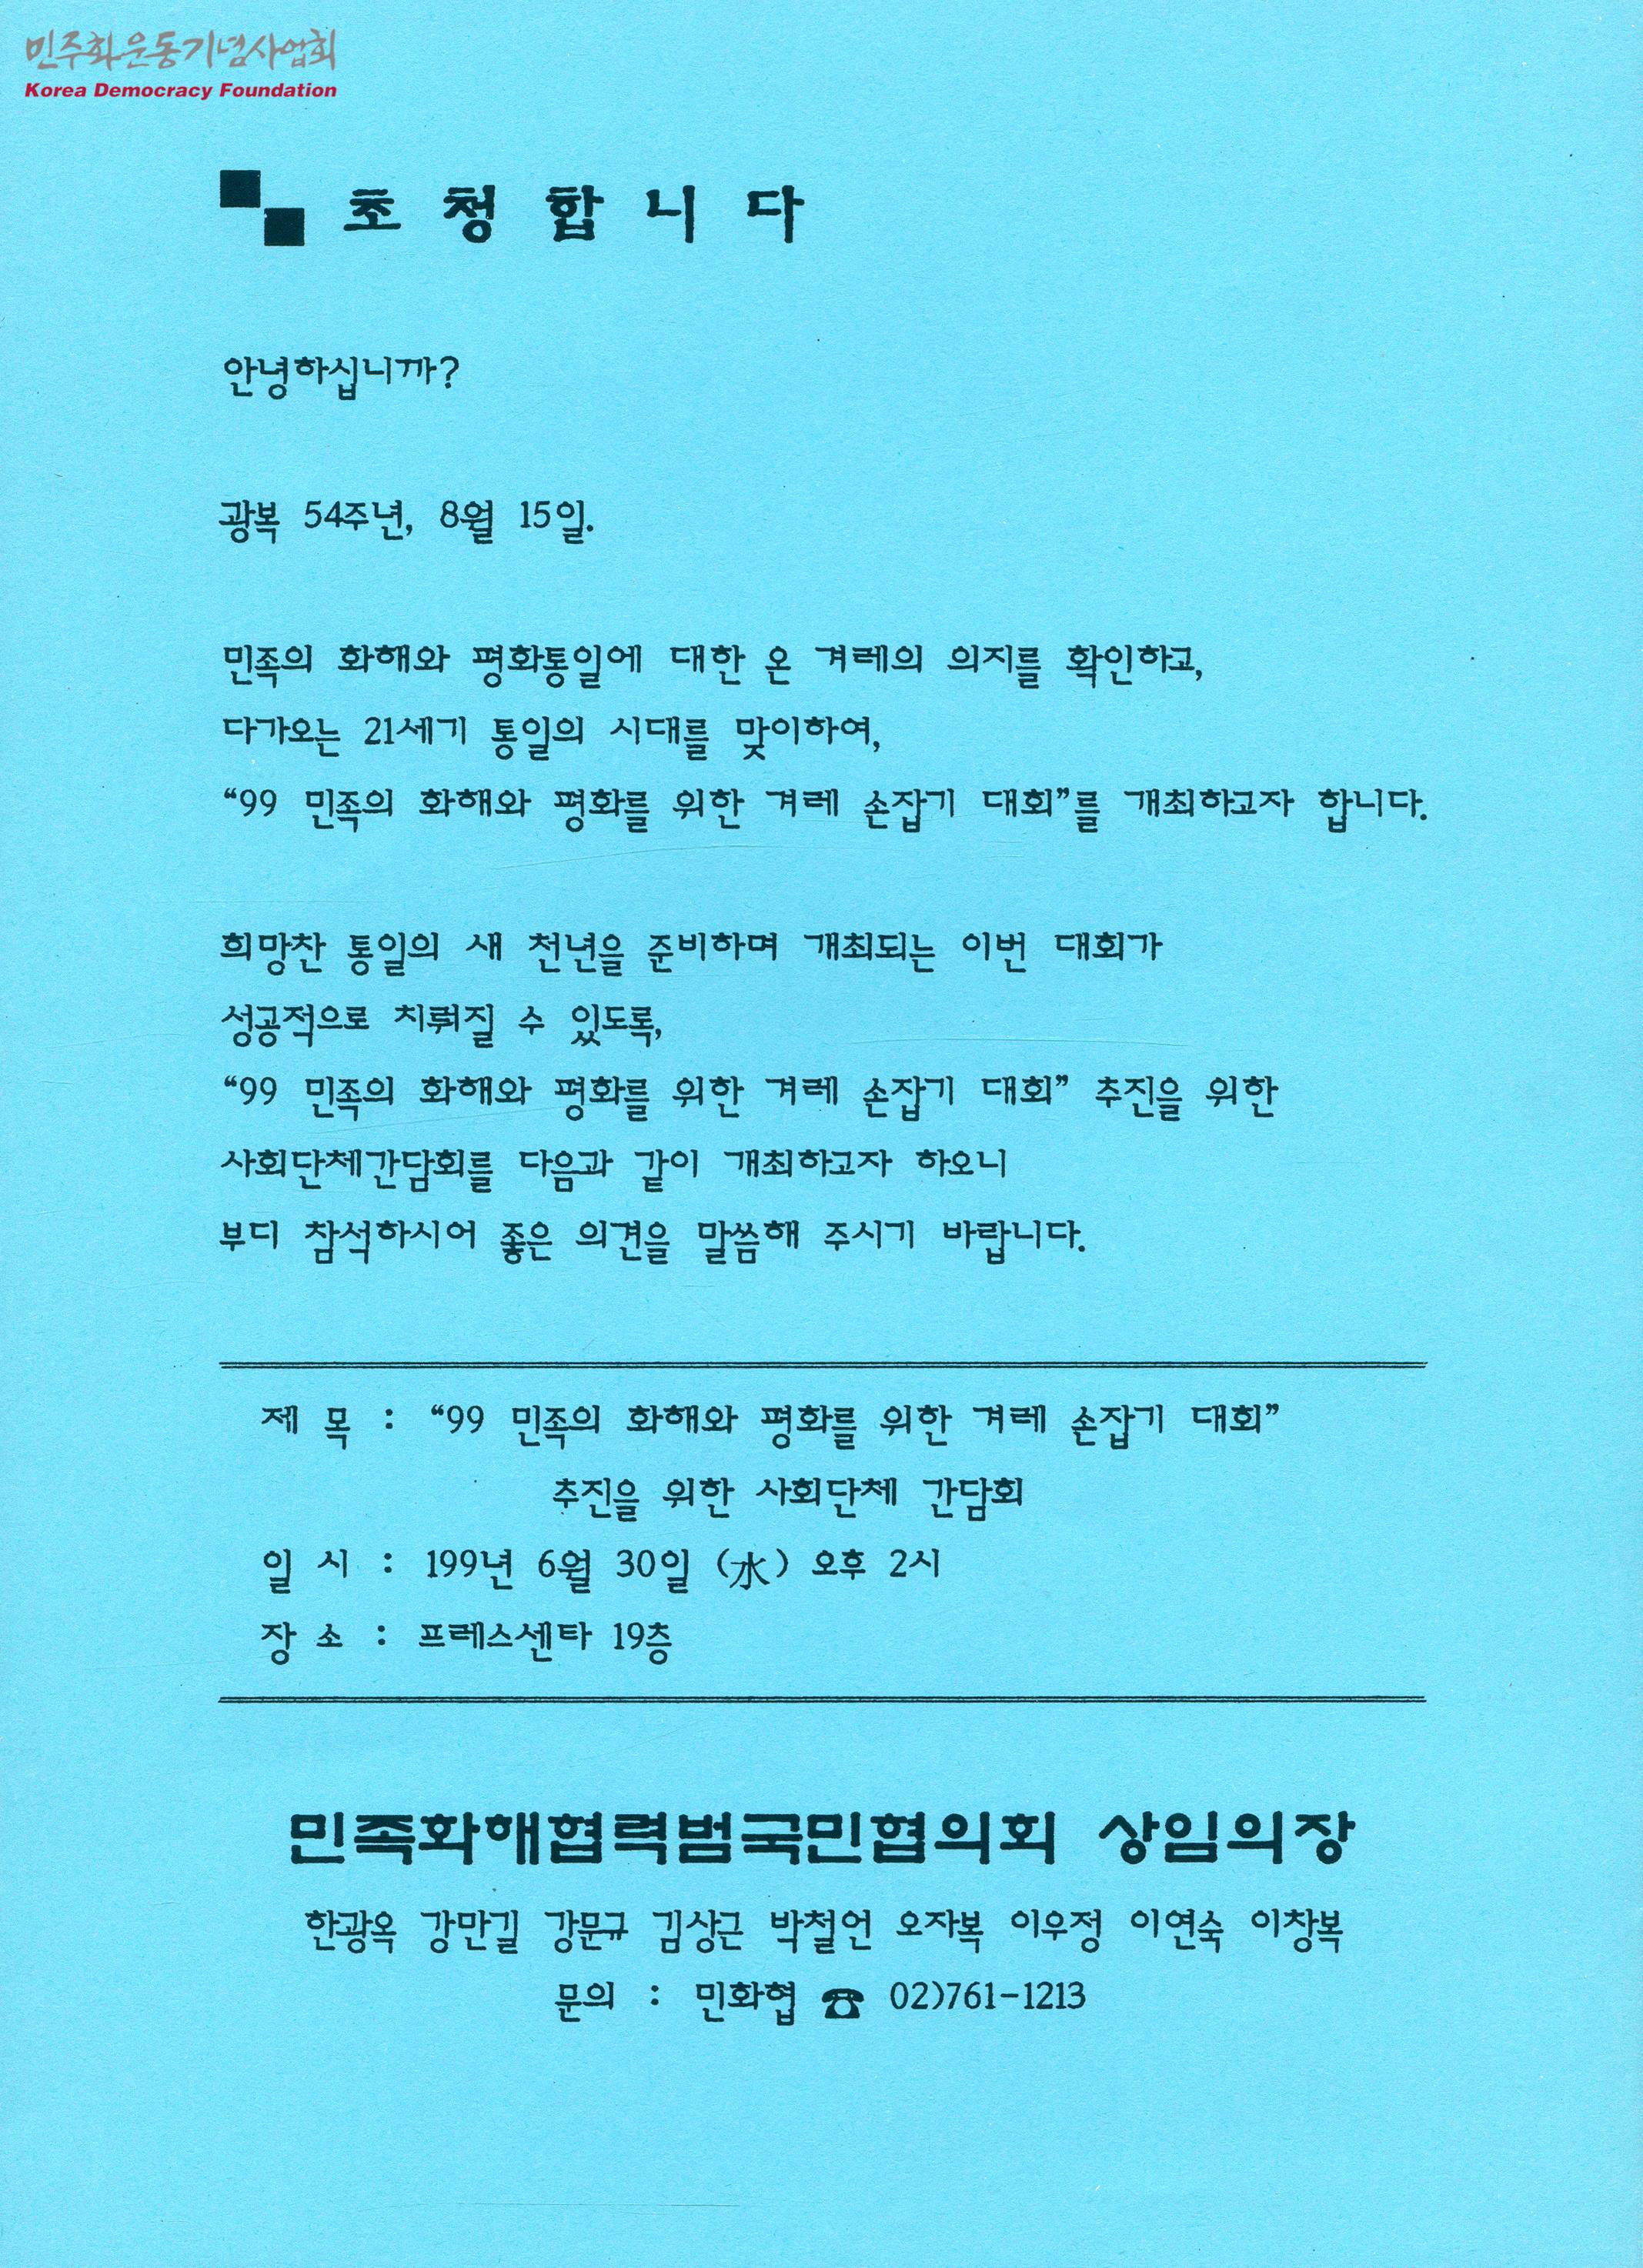 민주화운동기념사업회
Korea Democracy Foundation
초 청 합 니 다
안녕하십니까?
광복 54주년, 8월 15일.
민족의 화해와 평화통일에 대한 온 겨레의 의지를 확인하고,
다가오는 21세기 통일의 시대를 맞이하여,
“99 민족의 화해와 평화를 위한 겨레 손잡기 대회”를 개최하고자 합니다.
희망찬 통일의 새 천년을 준비하며 개최되는 이번 대회가
성공적으로 치뤄질 수 있도록,
“99 민족의 화해와 평화를 위한 겨레 손잡기 대회” 추진을 위한
사회단체간담회를 다음과 같이 개최하고자 하오니
부디 참석하시어 좋은 의견을 말씀해 주시기 바랍니다.
제 목 : “99 민족의 화해와 평화를 위한 겨레 손잡기 대회”
추진을 위한 사회단체 간담회
일 시 : 199년 6월 30일 (水) 오후 2시
장 소 : 프레스센타 19층
민족화해협력범국민협의회 상임의장
한광옥 강만길 강문규 김상근 박철언 오자복 이우정 이연숙 이창복
문의 : 민화협 ☎ 02)761-1213